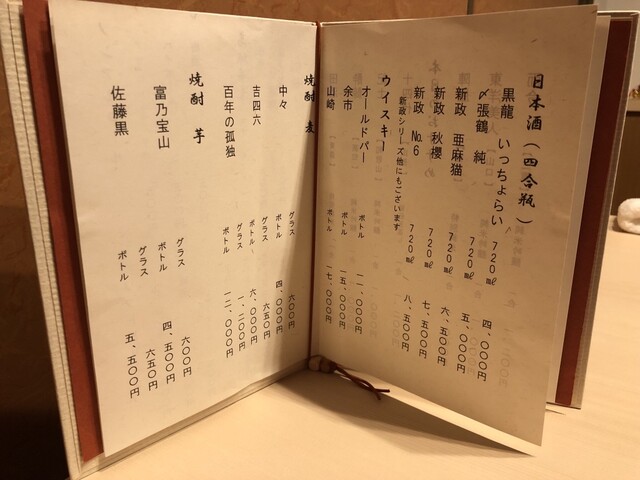 日本酒（四合瓶）
黒龍 いっちょらい 720㎖ 四、〇〇〇円
〆張鶴 純 720㎖ 五、〇〇〇円
新政 亜麻猫 720㎖ 六、五〇〇円
新政 秋櫻 720㎖ 七、五〇〇円
新政 No.6 720㎖ 八、五〇〇円
新政シリーズ他にもございます
ウイスキー
オールドパー ボトル 一一、〇〇〇円
余市 ボトル 一五、〇〇〇円
山崎 ボトル 一七、〇〇〇円
焼酎 麦
中々 グラス 六〇〇円
ボトル 四、〇〇〇円
吉四六 グラス 六五〇円
ボトル 六、〇〇〇円
百年の孤独 グラス 一、二〇〇円
ボトル 一二、〇〇〇円
焼酎 芋
富乃宝山 グラス 六〇〇円
ボトル 四、五〇〇円
佐藤黒 グラス 六五〇円
ボトル 五、五〇〇円